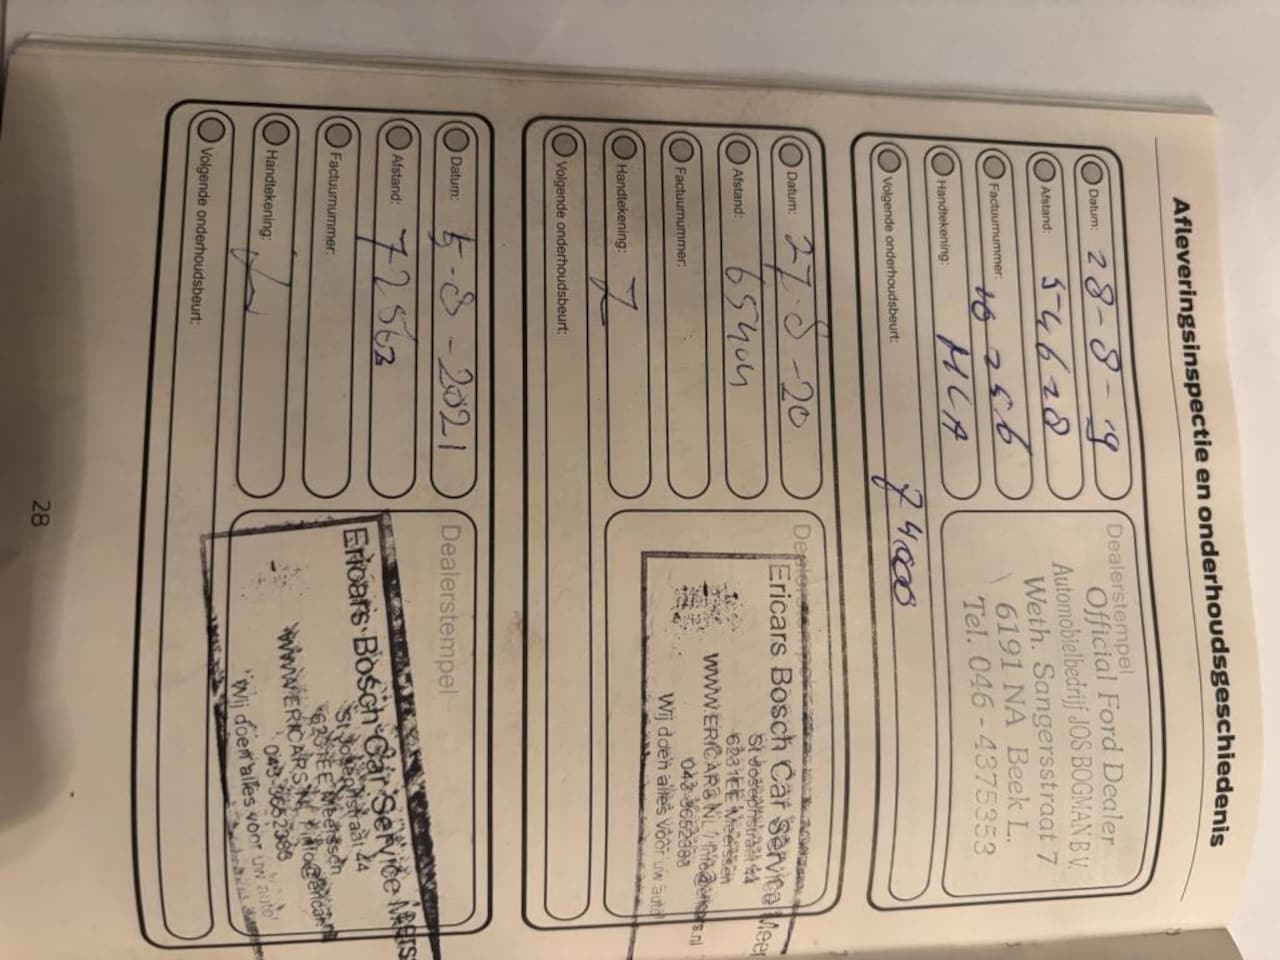 Afleveringsinspectie en onderhoudsgeschiedenis
Datum: 28-8-19
Afstand: 54628
Factuurnummer: 10256
Handtekening: MCA
Volgende onderhoudsbeurt: 74000
Dealerstempel
Official Ford Dealer
Automobielbedrijf JOS BOGMAN B.V.
Weth. Sangersstraat 7
6191 NA Beek L.
Tel. 046 - 4375353
Datum: 27-8-20
Afstand: 65404
Factuurnummer:
Handtekening:
Volgende onderhoudsbeurt:
Ericars Bosch Car Service Meer
St Josephstraat 44
6231 EE Meerssen
WWW.ERICARS.NL
Wij doen alles voor uw auto
Datum: 5-8-2021
Afstand: 72562
Factuurnummer:
Handtekening:
Volgende onderhoudsbeurt:
Dealerstempel
Ericars Bosch Car Service Meers
St Josephstraat 44
6231 EE Meerssen
WWW.ERICARS.NL
"Wij doen alles voor uw auto"
28